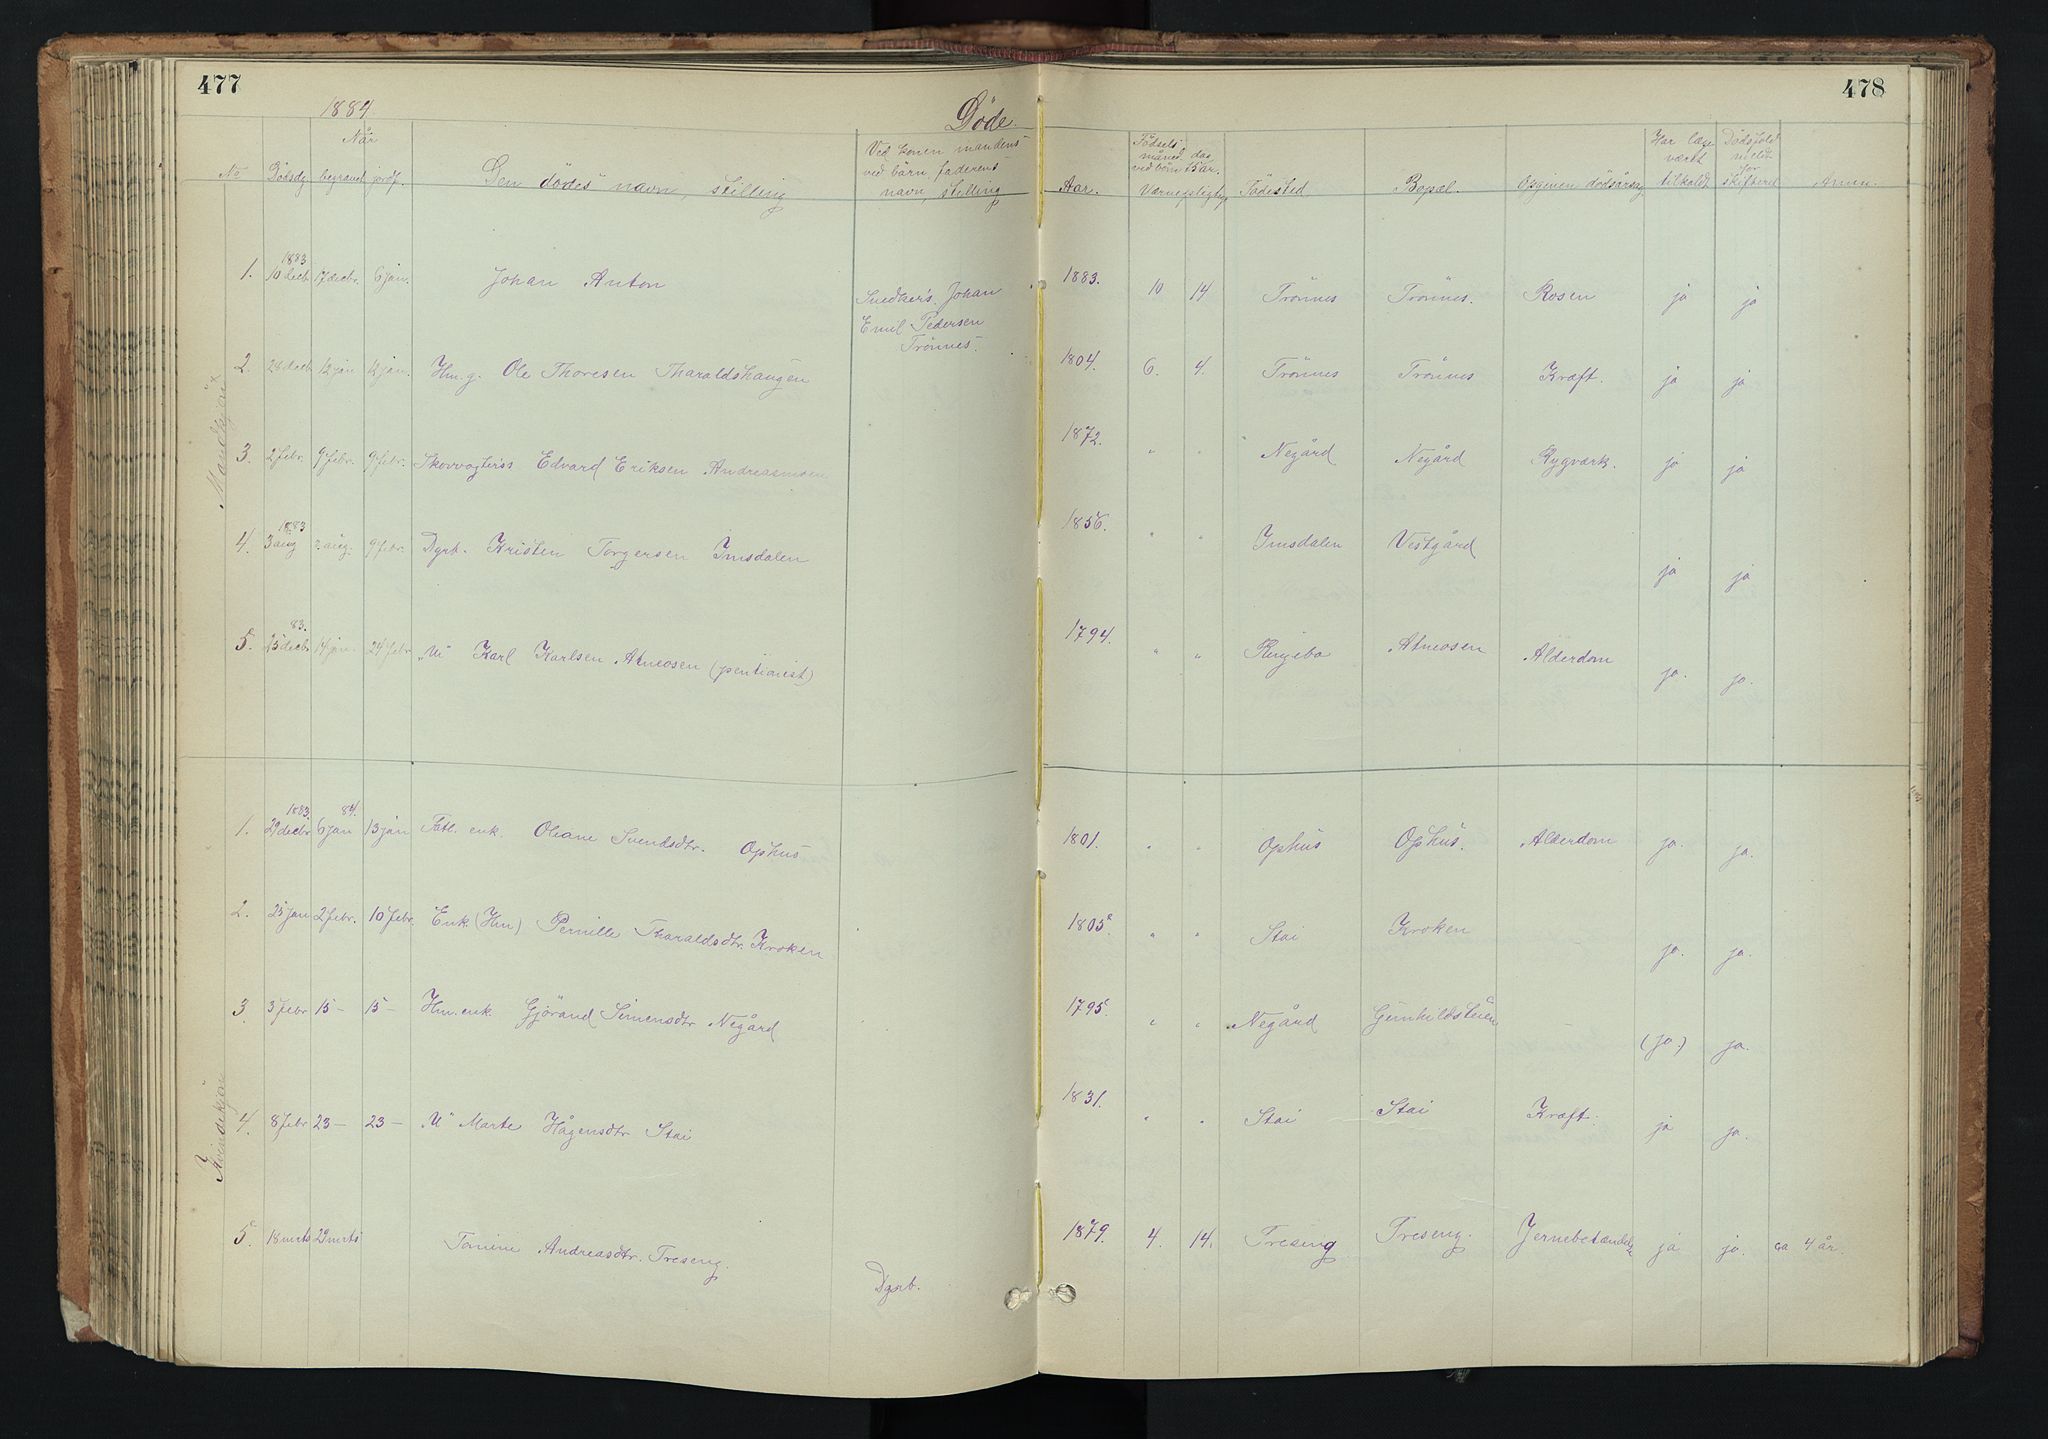 477
478
1884
Döde.
No
Når
Dødsdg. begravet jordf.
Den dödes navn, stilling
Ved konen mandens
ved börn, faderens
navn, stilling
Aar.
Fødsels
måned dag
ved börn 15 år.
Værnepligtige
Födested
Bopæl.
Opgiven dödsårsag
Har læge
været
tilkaldt
Dødsfald
meldt
for
skifteret
Anm.
Mandkjön
1. 1883 10 decb. 17 decbr. 6 jan. Johan Anton Snedkers. Johan Emil Pedersen Trönnes. 1883. 10 14 Trönnes Trönnes. Rosen ja ja
2. 28 decb 12 jan 12 jan. Hm.g. Ole Thoresen Tharaldshaugen 1804. 6. 4. Trönnes Trönnes Kræft. ja ja
3. 2 febr. 9 febr. 9 febr. Skovvogterss Edvard Eriksen Andreasmoen 1872. " " Negård Negård Rygværk. ja ja
4. 1883 3 aug aug. 9 febr. Dgrb. Kristen Torgersen Imsdalen 1856. " " Imsdalen Vestgård ja ja
5. 83. 25 decbr 14 jan. 24 febr "U" Karl Karlsen Atneosen (pentionist) 1794. " " Ringebo Atneosen Alderdom ja. ja.
Kvindekjön
1. 1883. 29 decbr 84. 6 jan 13 jan Fatt. enk. Oleane Svendsdtr. Ophus 1801. " " Ophus Ophus. Alderdom ja. ja.
2. 25 jan 2 febr. 10 febr. Enk. (Hm) Pernille Tharaldsdtr. Kroken 1805. " " Stai Kroken ja. ja.
3. 3 febr 15 — 15 — Hm. enk. Gjörand Simensdtr Negård 1795. " " Negård Gunhildstuen (ja.) ja.
4. 8 febr 23 — 23 — U" Marte Hågensdtr Stai 1831. " " Stai Stai Kræft. ja ja.
5. 18 mrts 29 mrts Tomine Andreasdtr. Treseng. Dgrb. 1879. 4. 14. Treseng Treseng. Jernebetændelse ja ja. ca 4 år.